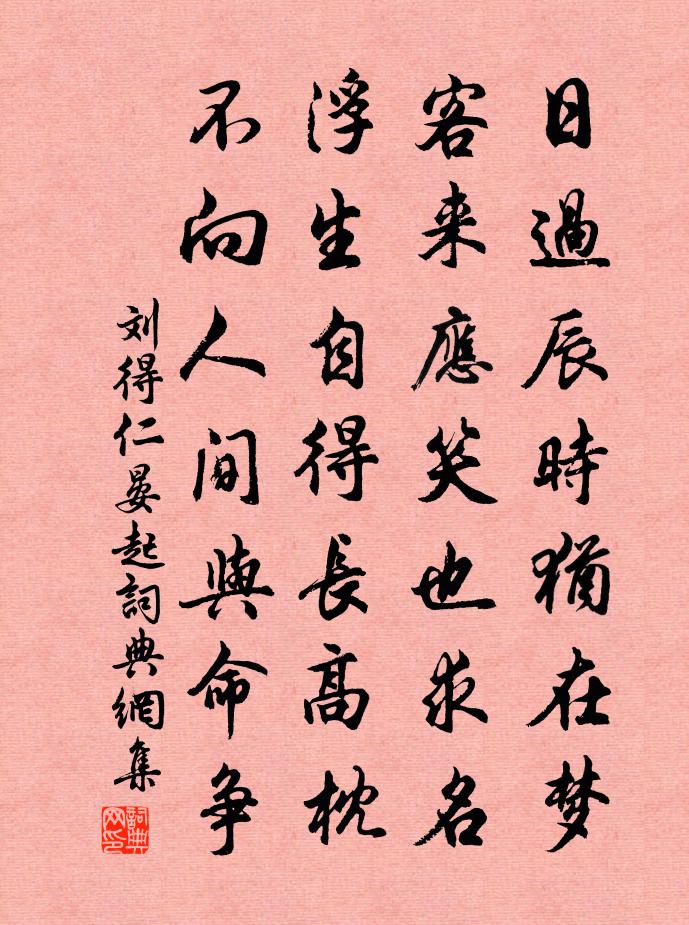 日過辰時猶在梦
客来應笑也求名
浮生自得長高枕
不向人间與命争
刘得仁晏起詞典網集
詞典网印